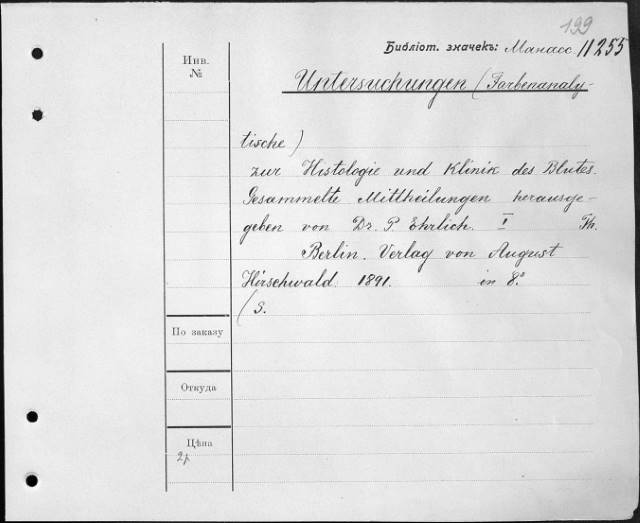 199
Библіот. значекъ: Манасс. 11255
Инв.
№
Untersuchungen (Farbenanaly-
tische)
zur Histologie und Klinik des Blutes.
Gesammelte Mittheilungen herausge-
geben von Dr. P. Ehrlich. I Th.
Berlin. Verlag von August
Hirschwald. 1891. in 8.º
(S.
По заказу
Откуда
Цѣна
2 р.